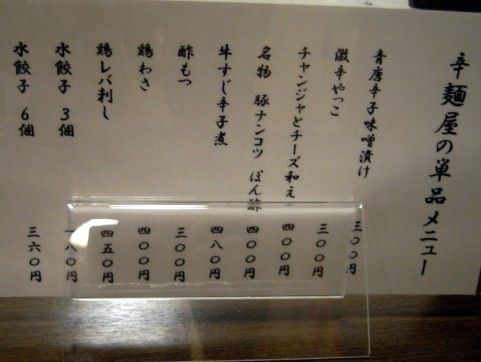 辛麺屋の単品メニュー
青唐辛子味噌漬け 三〇〇円
激辛やっこ 三〇〇円
チャンジャとチーズ和え 四〇〇円
名物 豚ナンコツ ぽん酢 四〇〇円
牛すじ辛子煮 四八〇円
酢もつ 三〇〇円
鶏わさ 四〇〇円
鶏レバ刺し 四五〇円
水餃子 3個 一八〇円
水餃子 6個 三六〇円